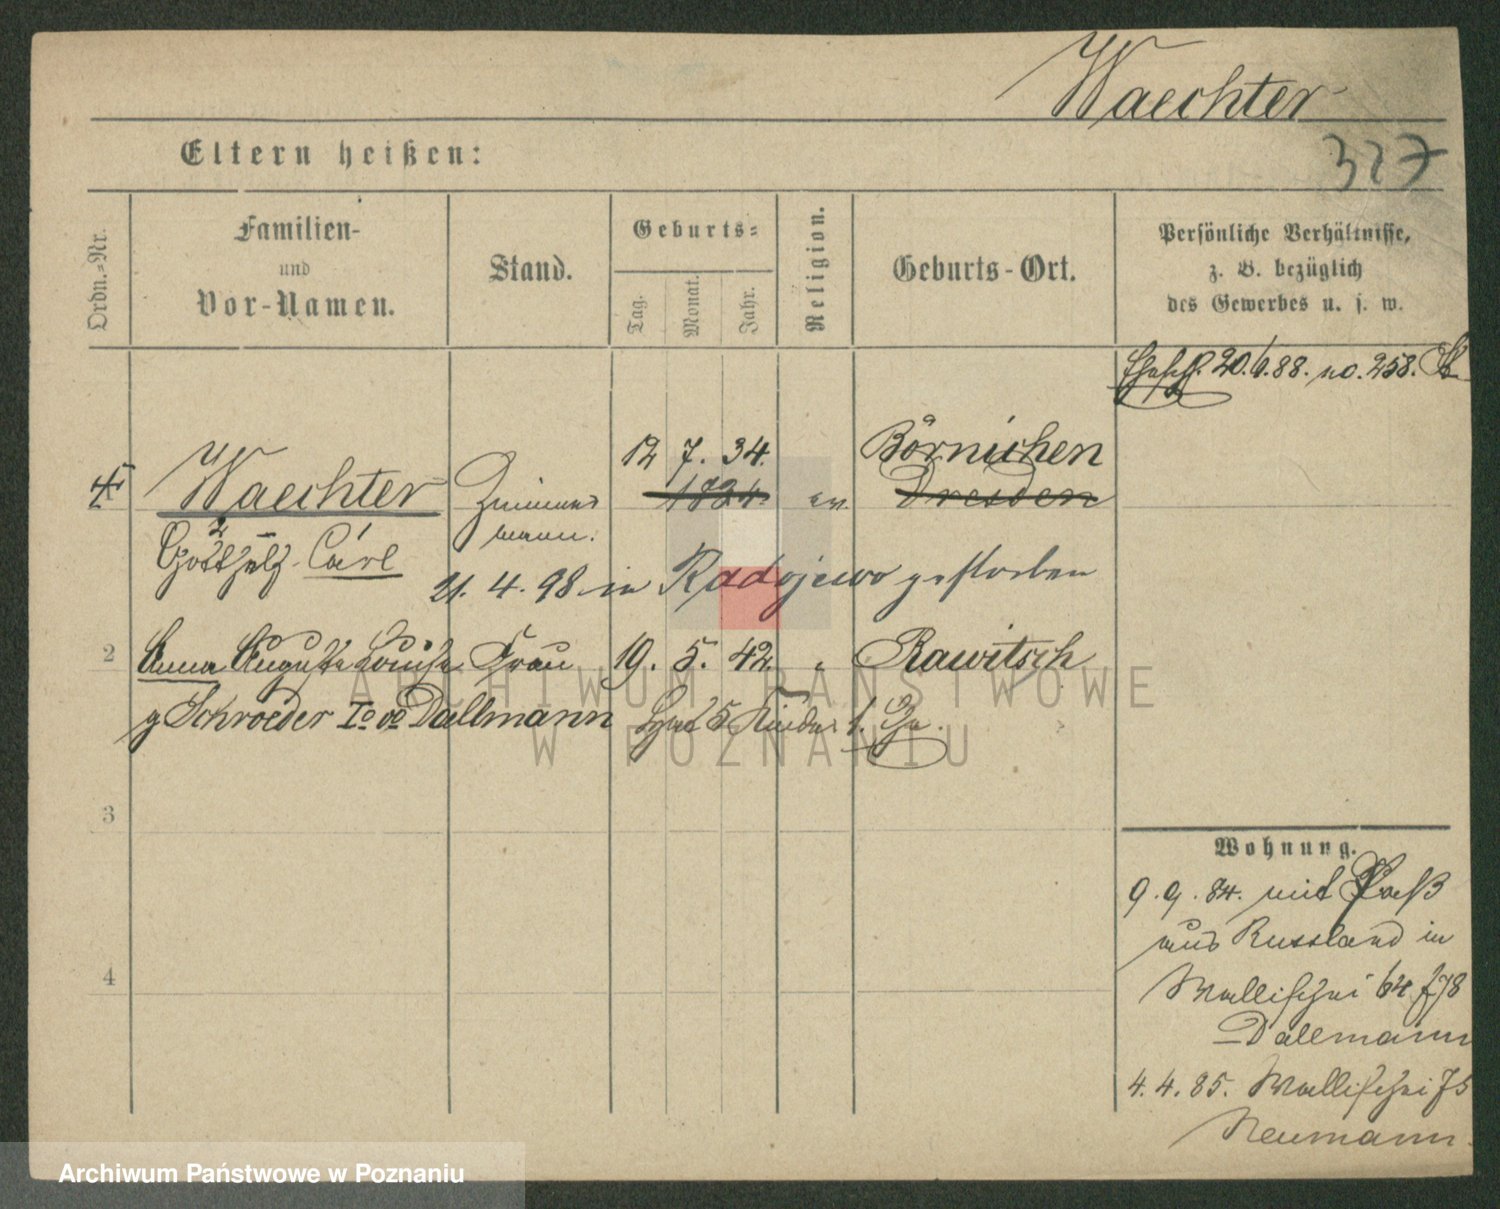 Waechter
327
Eltern heißen:
Ordn.-Nr.
Familien-
und
Vor-Namen.
Stand.
Geburts-
Tag.
Monat.
Jahr.
Religion.
Geburts-Ort.
Persönliche Verhältnisse,
z. B. bezüglich
des Gewerbes u. s. w.
Eheschl. 20. 6. 88. no. 258.
12 7. 34. Börnichen
Waechter Zimmer 1824 ev. Dresden
mann.
Gotthelf Carl
21. 4. 98 in Radojewo gestorben
2 Anna Auguste Louise Frau 19. 5. 42. " Rawitsch
g Schroeder Io vo Dallmann hat 5 Kinder 1. Ehe.
3
4
Wohnung.
9. 9. 84. mit Paß
aus Russland in
Wallischei 64 f 78
Dallmann
4. 4. 85. Wallischei 75
Neumann.
ARCHIWUM PAŃSTWOWE
W POZNANIU
Archiwum Państwowe w Poznaniu